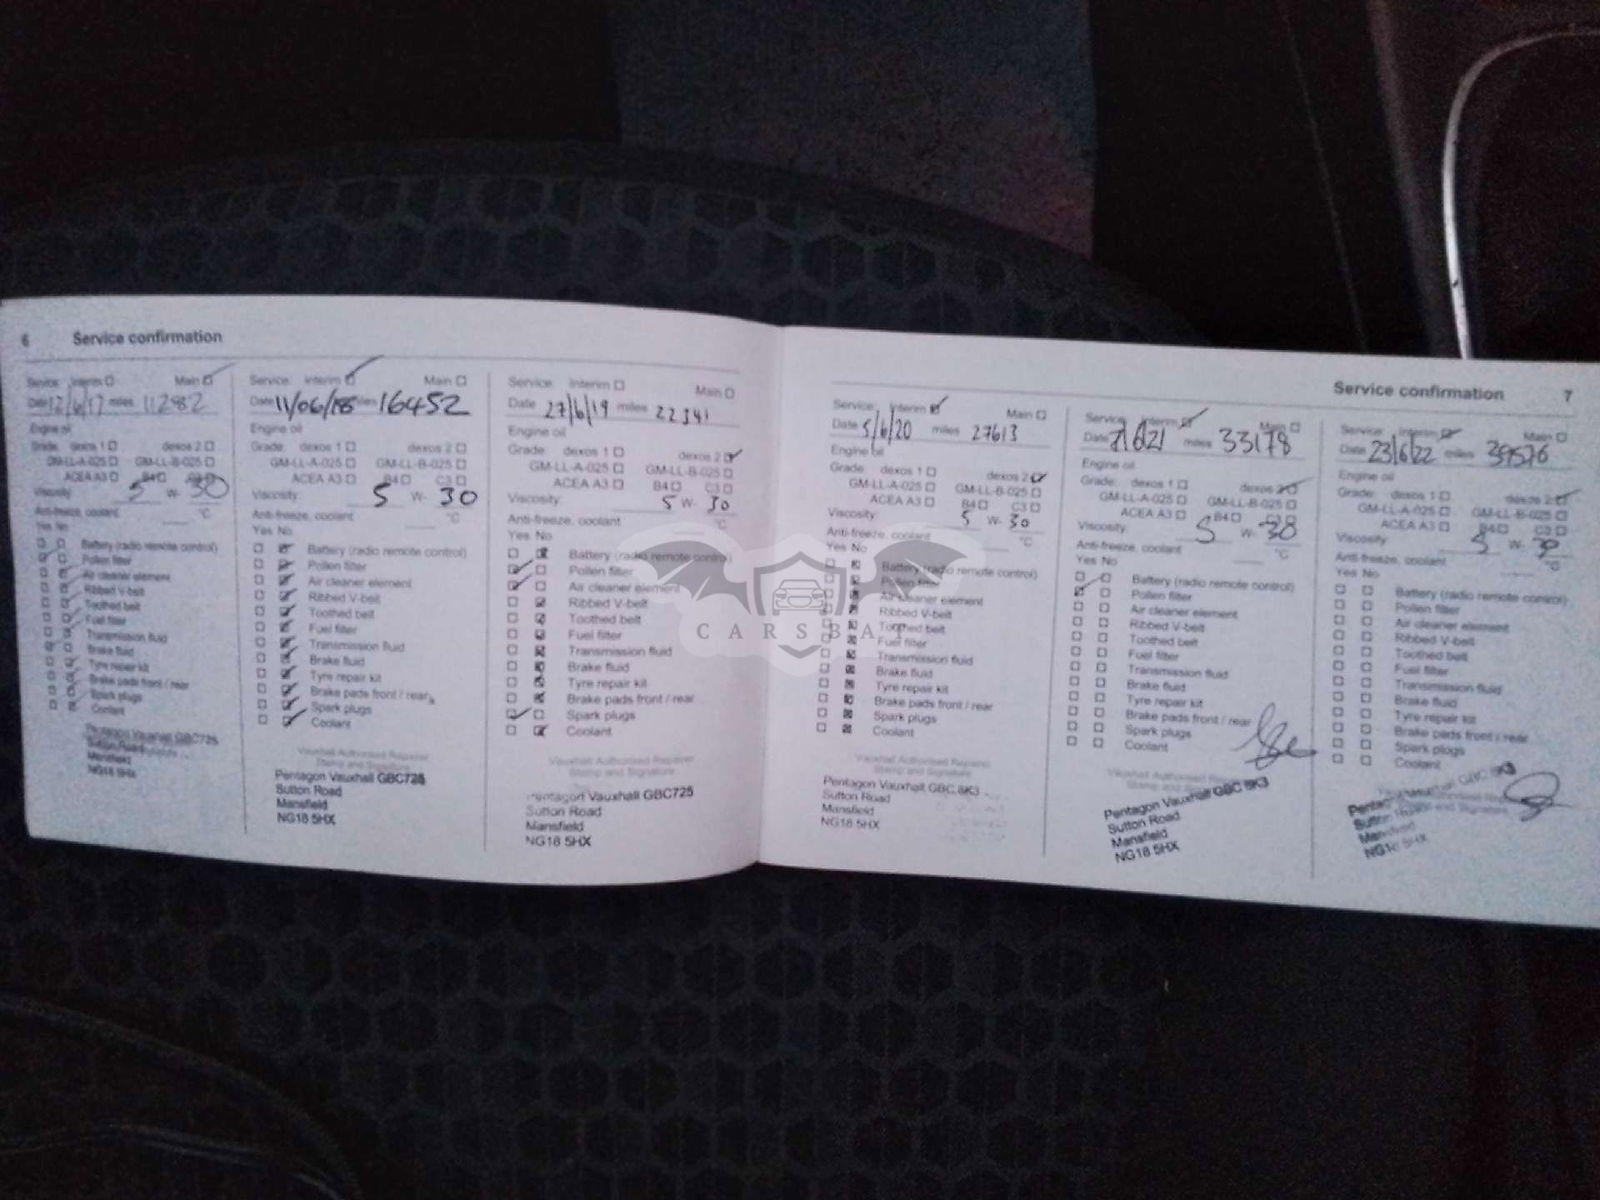 6 Service confirmation
Service: Interim Main
Date 12/6/17 miles 11282
Engine oil
Grade: dexos 1 dexos 2
GM-LL-A-025 GM-LL-B-025
ACEA A3 B4 C3
Viscosity 5 W- 30
Anti-freeze, coolant °C
Yes No
Battery (radio remote control)
Pollen filter
Air cleaner element
Ribbed V-belt
Toothed belt
Fuel filter
Transmission fluid
Brake fluid
Tyre repair kit
Brake pads front / rear
Spark plugs
Coolant
Pentagon Vauxhall GBC725
Sutton Road
Mansfield
NG18 5HX
Service: Interim Main
Date 11/06/18 miles 16452
Engine oil
Grade: dexos 1 dexos 2
GM-LL-A-025 GM-LL-B-025
ACEA A3 B4 C3
Viscosity: 5 W- 30
Anti-freeze, coolant °C
Yes No
Battery (radio remote control)
Pollen filter
Air cleaner element
Ribbed V-belt
Toothed belt
Fuel filter
Transmission fluid
Brake fluid
Tyre repair kit
Brake pads front / rear
Spark plugs
Coolant
Vauxhall Authorised Repairer
Stamp and Signature
Pentagon Vauxhall GBC725
Sutton Road
Mansfield
NG18 5HX
Service: Interim Main
Date 27/6/19 miles 22341
Engine oil
Grade: dexos 1 dexos 2
GM-LL-A-025 GM-LL-B-025
ACEA A3 B4 C3
Viscosity: 5 W- 30
Anti-freeze, coolant °C
Yes No
Battery (radio remote control)
Pollen filter
Air cleaner element
Ribbed V-belt
Toothed belt
Fuel filter
Transmission fluid
Brake fluid
Tyre repair kit
Brake pads front / rear
Spark plugs
Coolant
Vauxhall Authorised Repairer
Stamp and Signature
Pentagon Vauxhall GBC725
Sutton Road
Mansfield
NG18 5HX
Service confirmation 7
Service: Interim Main
Date 5/6/20 miles 27613
Engine oil
Grade: dexos 1 dexos 2
GM-LL-A-025 GM-LL-B-025
ACEA A3 B4 C3
Viscosity: 5 W- 30
Anti-freeze, coolant °C
Yes No
Battery (radio remote control)
Pollen filter
Air cleaner element
Ribbed V-belt
Toothed belt
Fuel filter
Transmission fluid
Brake fluid
Tyre repair kit
Brake pads front / rear
Spark plugs
Coolant
Vauxhall Authorised Repairer
Stamp and Signature
Pentagon Vauxhall GBC 8K3
Sutton Road
Mansfield
NG18 5HX
Service: Interim Main
Date 7/6/21 miles 33178
Engine oil
Grade: dexos 1 dexos 2
GM-LL-A-025 GM-LL-B-025
ACEA A3 B4
Viscosity: 5 W- 30
Anti-freeze, coolant °C
Yes No
Battery (radio remote control)
Pollen filter
Air cleaner element
Ribbed V-belt
Toothed belt
Fuel filter
Transmission fluid
Brake fluid
Tyre repair kit
Brake pads front / rear
Spark plugs
Coolant
Vauxhall Authorised Repairer
Stamp and
Pentagon Vauxhall GBC 8K3
Sutton Road
Mansfield
NG18 5HX
Service: Interim Main
Date 23/6/22 miles 39576
Engine oil
Grade: dexos 1 dexos 2
GM-LL-A-025 GM-LL-B-025
ACEA A3 B4 C3
Viscosity: 5 W- 30
Anti-freeze, coolant °C
Yes No
Battery (radio remote control)
Pollen filter
Air cleaner element
Ribbed V-belt
Toothed belt
Fuel filter
Transmission fluid
Brake fluid
Tyre repair kit
Brake pads front / rear
Spark plugs
Coolant
Pentagon Vauxhall GBC 8K3
Sutton Road
Mansfield
NG18 5HX
CARSBAT